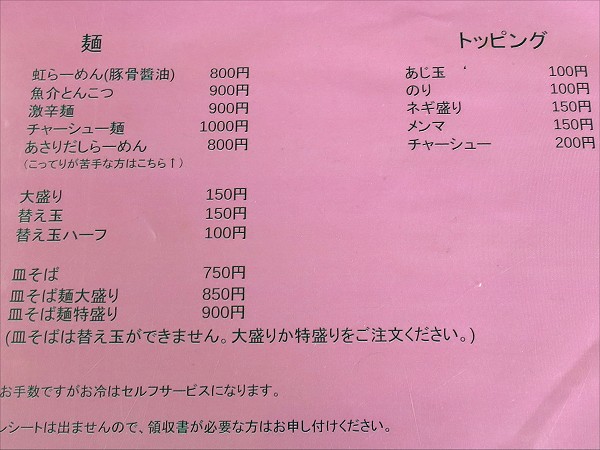 麺
虹らーめん(豚骨醬油) 800円
魚介とんこつ 900円
激辛麺 900円
チャーシュー麺 1000円
あさりだしらーめん 800円
(こってりが苦手な方はこちら↑)
大盛り 150円
替え玉 150円
替え玉ハーフ 100円
皿そば 750円
皿そば麺大盛り 850円
皿そば麺特盛り 900円
(皿そばは替え玉ができません。大盛りか特盛りをご注文ください。)
トッピング
あじ玉 100円
のり 100円
ネギ盛り 150円
メンマ 150円
チャーシュー 200円
お手数ですがお冷はセルフサービスになります。
レシートは出ませんので、領収書が必要な方はお申し付けください。